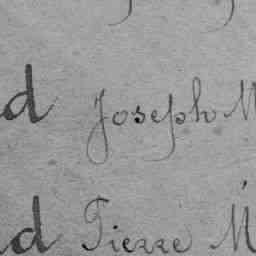 d Joseph M
d Pierre M